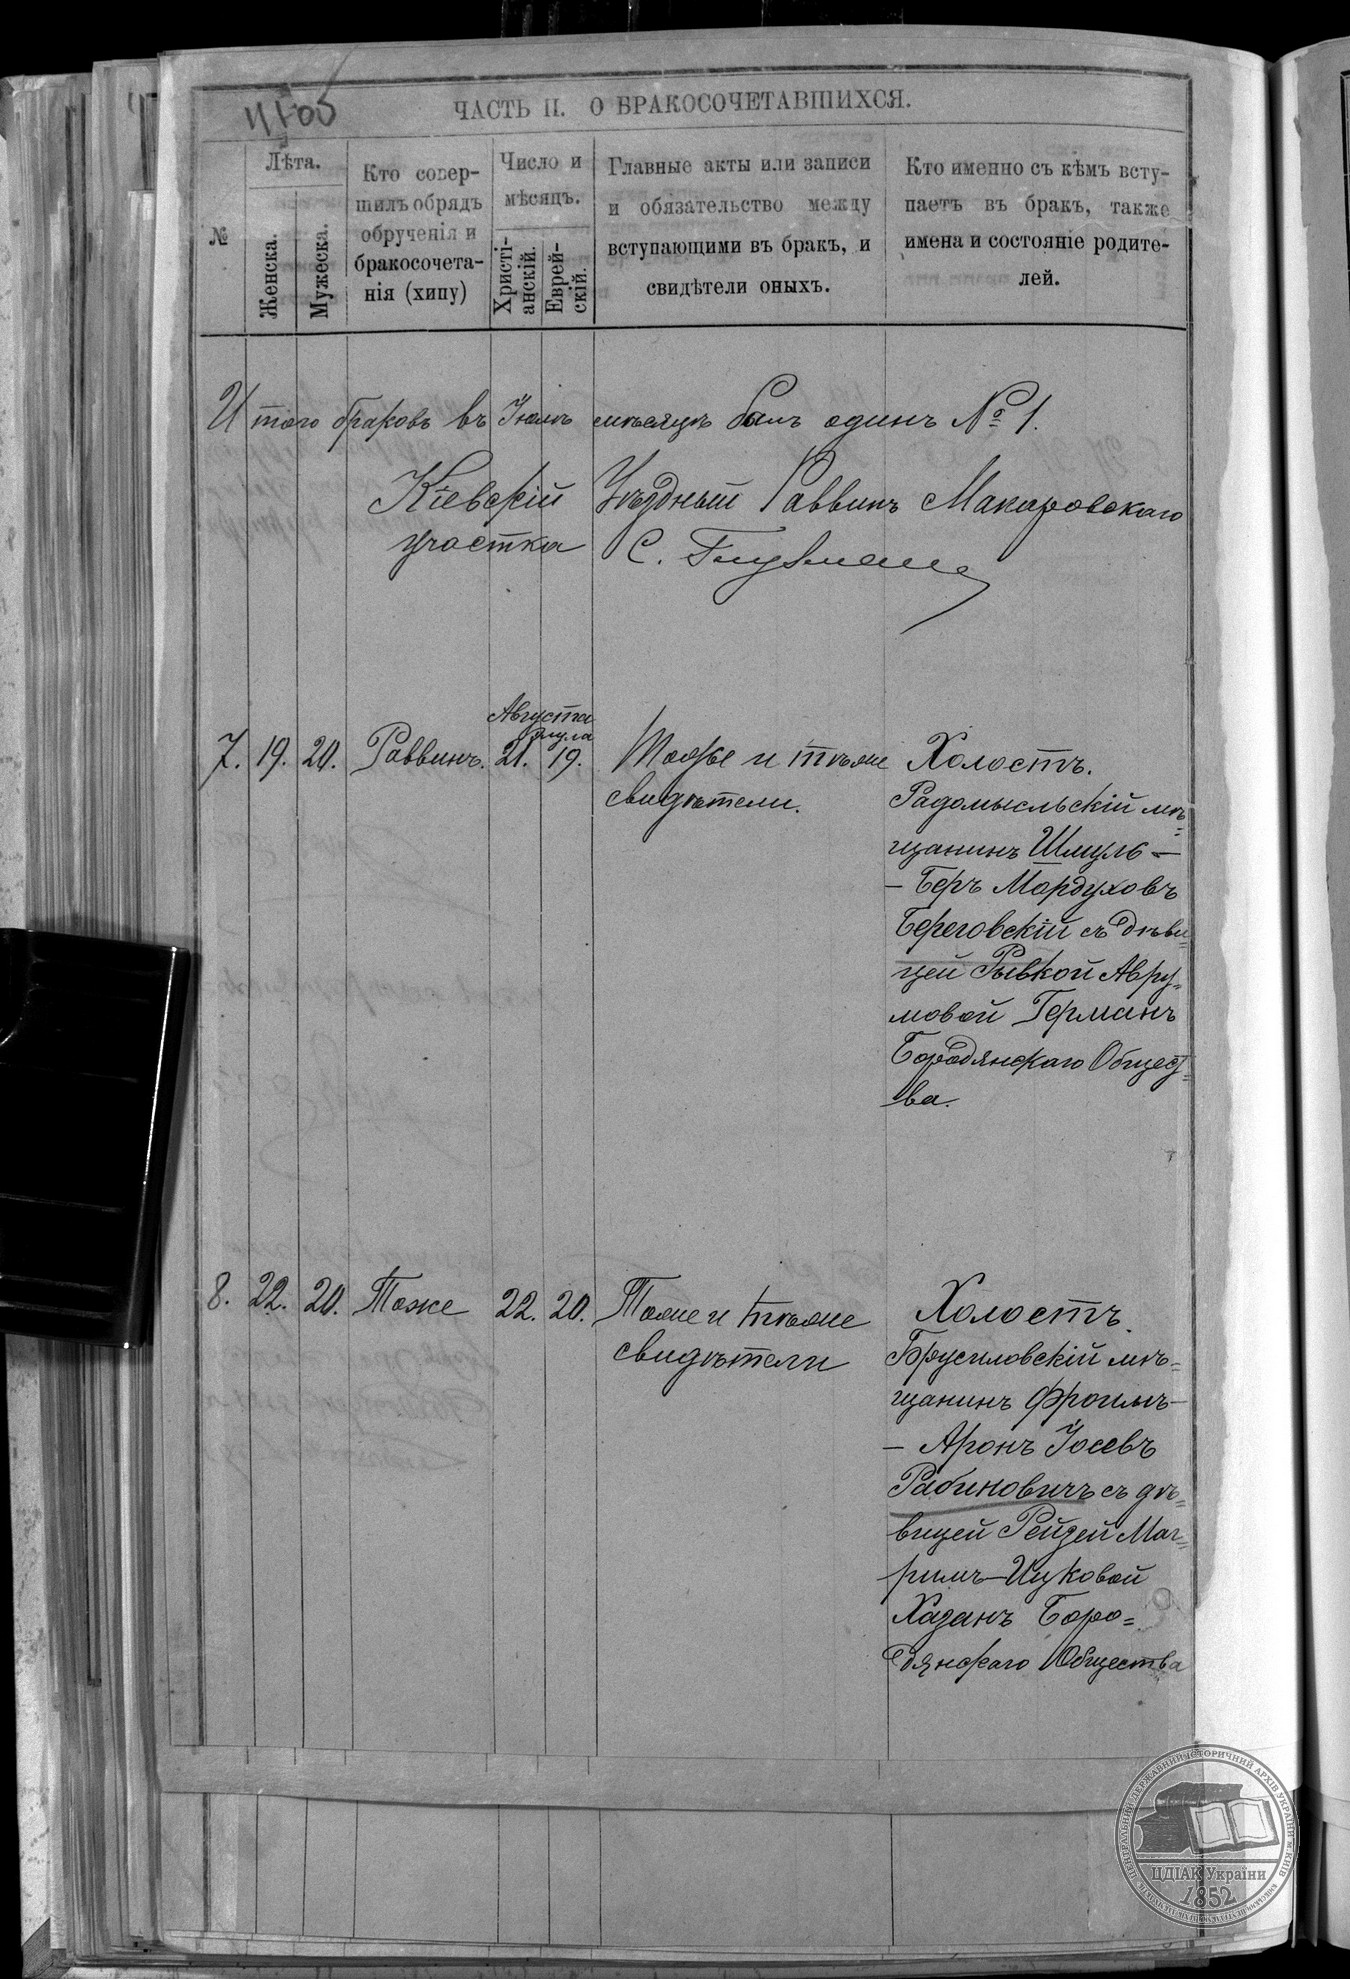 ЧАСТЬ II. О БРАКОСОЧЕТАВШИХСЯ.
№
Лѣта.
Женска.
Мужеска.
Кто совер-
шилъ обрядъ
обрученія и
бракосочета-
нія (хипу)
Число и
мѣсяцъ.
Христі-
анскій.
Еврей-
скій.
Главные акты или записи
и обязательство между
вступающими въ бракъ, и
свидѣтели оныхъ.
Кто именно съ кѣмъ всту-
паетъ въ бракъ, также
имена и состояніе родите-
лей.
Итого браковъ въ Іюлѣ мѣсяцѣ былъ одинъ № 1.
Кіевскій Уѣздный Раввинъ Макаровскаго
участка С.
Августа
Элула
7. 19. 20. Раввинъ. 21. 19. Тоже и тѣже
свидѣтели.
Холостъ.
Радомысльскій мѣ=
щанинъ Шмуль —
— Беръ Мордуховъ
Береговскій съ дѣви=
цей Рывкой Авру=
мовой Германъ
Бородянскаго Общест=
ва.
8. 22. 20. Тоже 22. 20. Тоже и тѣже
свидѣтели
Холостъ.
Брусиловскій мѣ=
щанинъ Фроимъ —
— Аронъ Іосевъ
Рабиновичъ съ дѣ=
вицей Рейзей Маг=
римъ-Ицковой
Хазанъ Боро=
дянскаго Общества
ЦЕНТРАЛЬНИЙ ДЕРЖАВНИЙ ІСТОРИЧНИЙ АРХІВ УКРАЇНИ м. КИЇВ
ЦДІАК України
1852